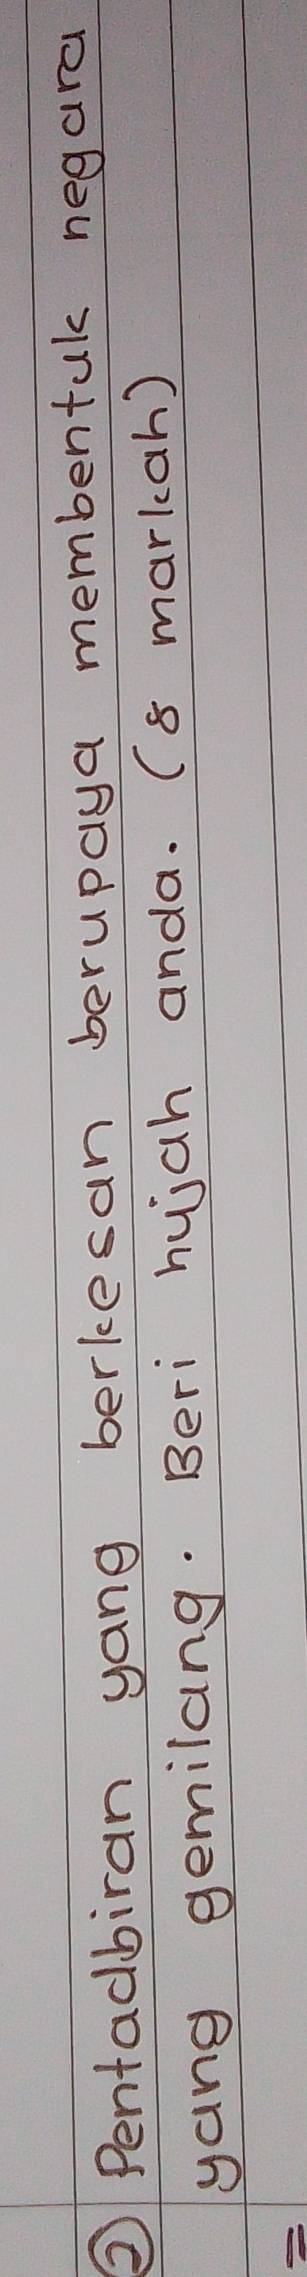 ② Pentadbiran yang berkesan berupaya membentuk negara
yang gemilang. Beri hujah anda. (8 markah)
=